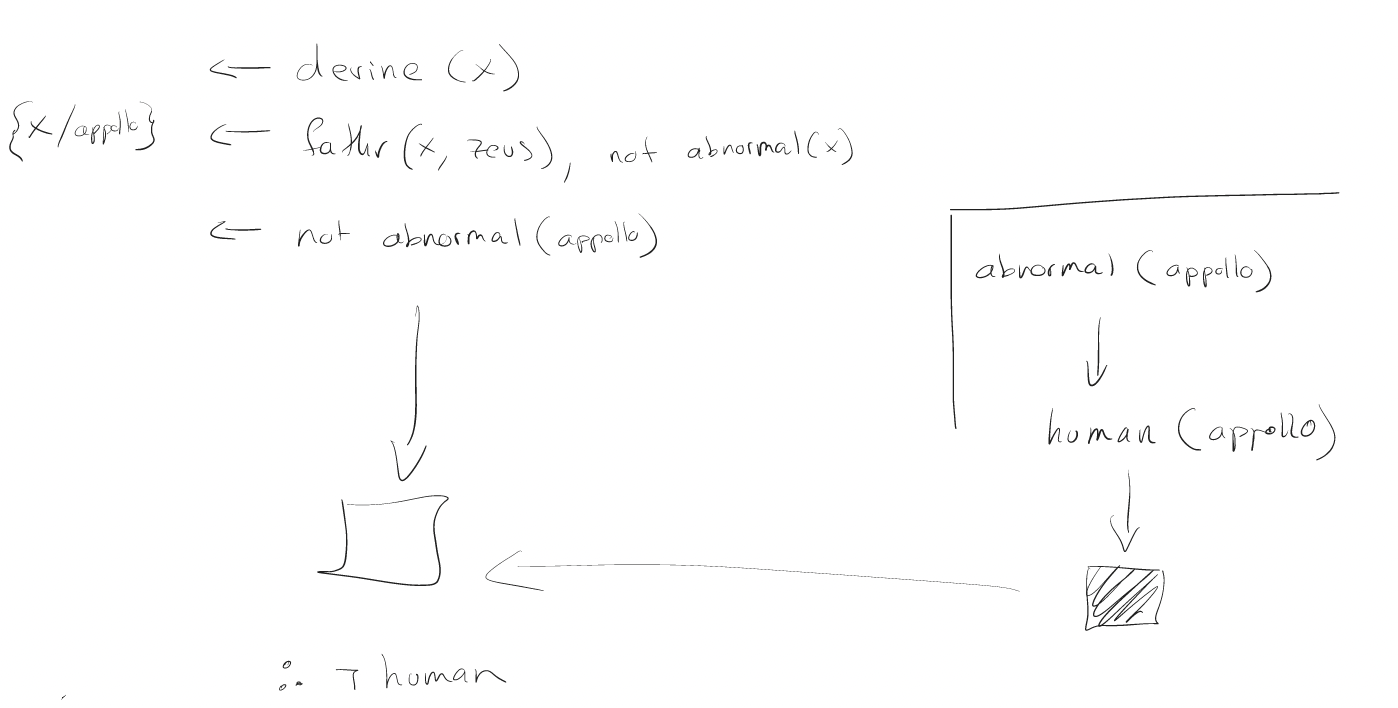 ← devine (x)
{x/appollo} ← fathr (x, zeus), not abnormal(x)
← not abnormal (appollo)
abnormal (appollo)
human (appollo)
∴ ¬ human